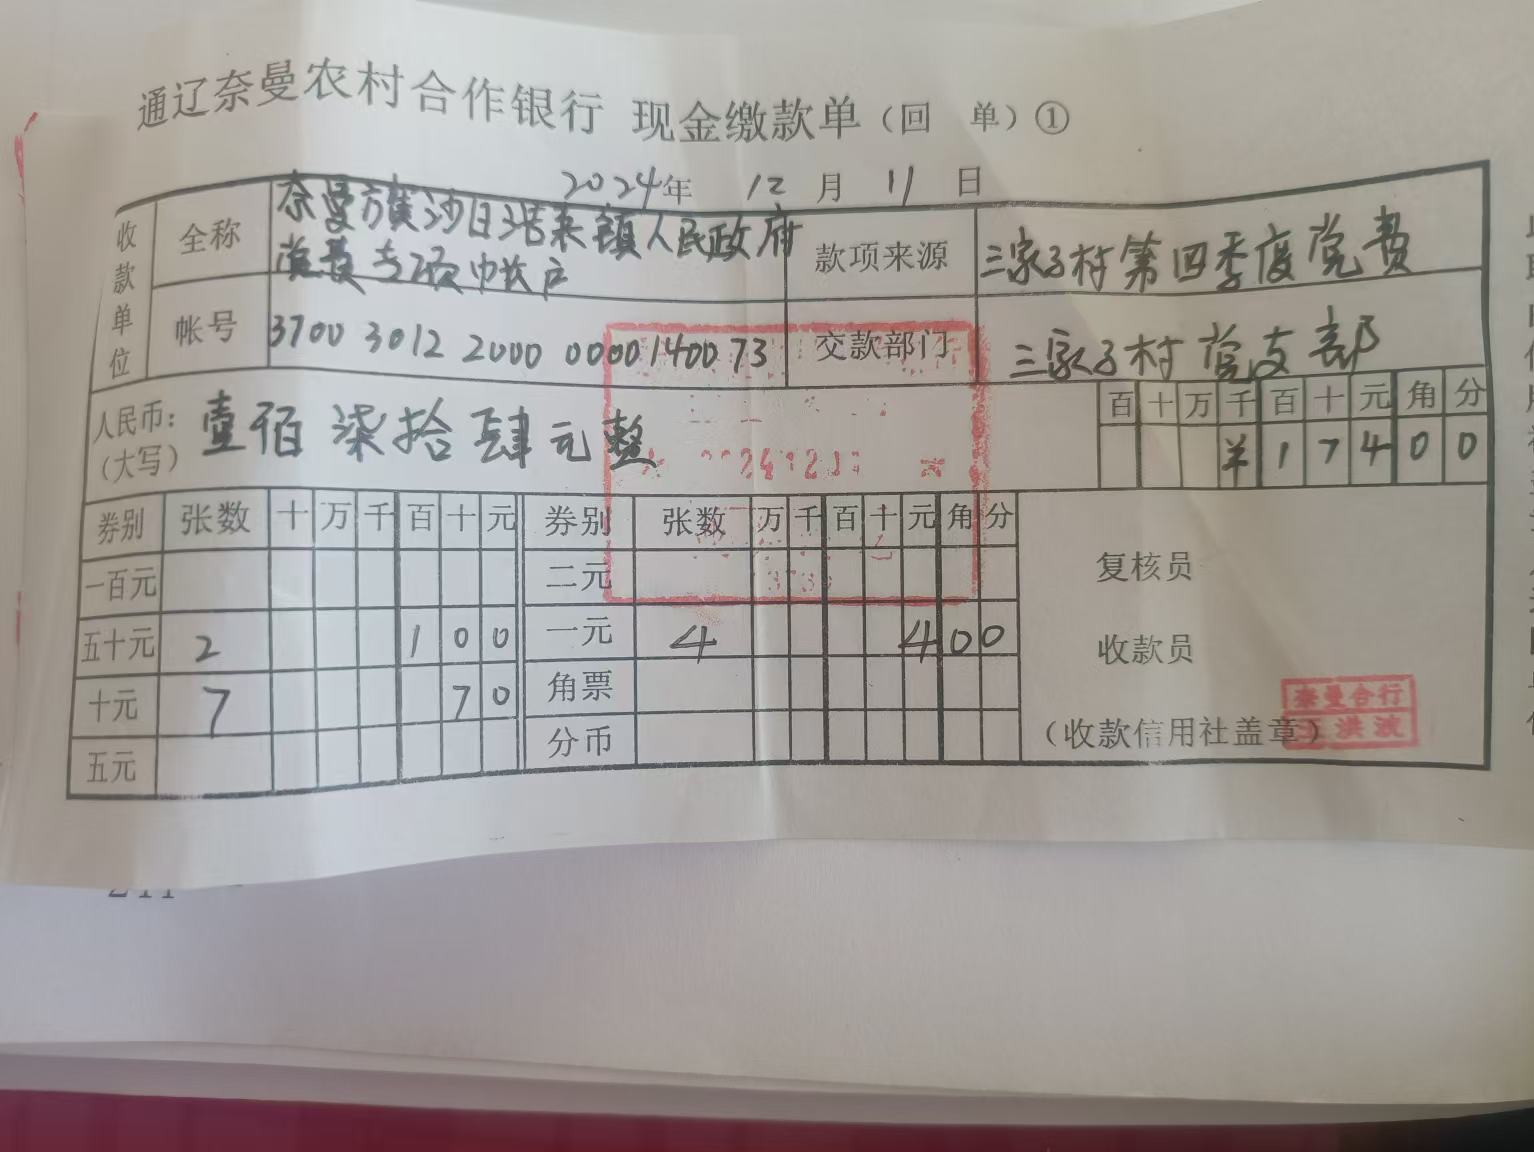 通辽奈曼农村合作银行 现金缴款单（回 单）①
2024年 12月 11日
收款单位
全称 奈曼旗沙日浩来镇人民政府
党费专项账户
款项来源 三家子村第四季度党费
帐号 3700 3012 2000 0000140073
交款部门 三家子村党支部
人民币：
（大写） 壹佰柒拾肆元整
百 十 万 千 百 十 元 角 分
¥ 1 7 4 0 0
券别 张数 十 万 千 百 十 元 券别 张数 万 千 百 十 元 角 分
一百元 二元
五十元 2 1 0 0 一元 4 4 0 0
十元 7 7 0 角票
五元 分币
复核员
收款员
（收款信用社盖章）
奈曼合行
王洪波